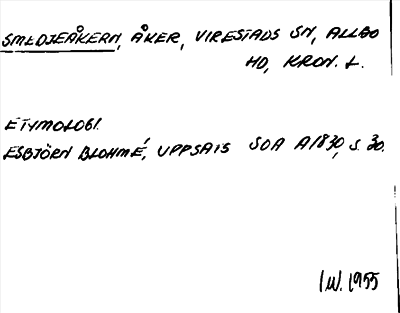 SMEDJEÅKERN, ÅKER, VIRESTADS SN, ALLBO
HD, KRON. L.
ETYMOLOGI.
ESBJÖRN BLOHMÉ, UPPSATS SOA A1830, S. 30.
IW. 1955